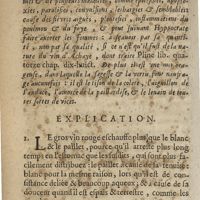 sies, paralysies, convulsions, lethargies & semblables
cause des fievres aiguës, pleuresies, inflammations du
poulmon & du foye, & peut suivant Hyppocrate
faire avorter les femmes : à sçavoir par sa quantité
, non par sa qualité, si ce n'est qu'il fust de la natu-
re du vin d'Achaye, dont traite Pline lib. qua-
torze chap. dix-huict. De plus c'est une mer dange-
reuse, dans laquelle la sagesse & la vertu font naufra-
ge aucunefois : c'est le tison de la colere, l'aiguillon de
l'audace, l'amorce de la paillardise, & le levain de tou-
tes sortes de vices.
EXPLICATION.
1. LE gros vin rouge eschauffe plus que le blanc
& le paillet, pource qu'il arreste plus long
temps en l'estomac que les subtils, qui sont plus fa-
cilement distribuez : le paillet à cause de sa tenuité :
blanc pour la mesme raison, lors qu'il est de con-
sistance deliée & beaucoup aqueux ; & à cause de sa
douceur quand il est espais & terrestre, comme les